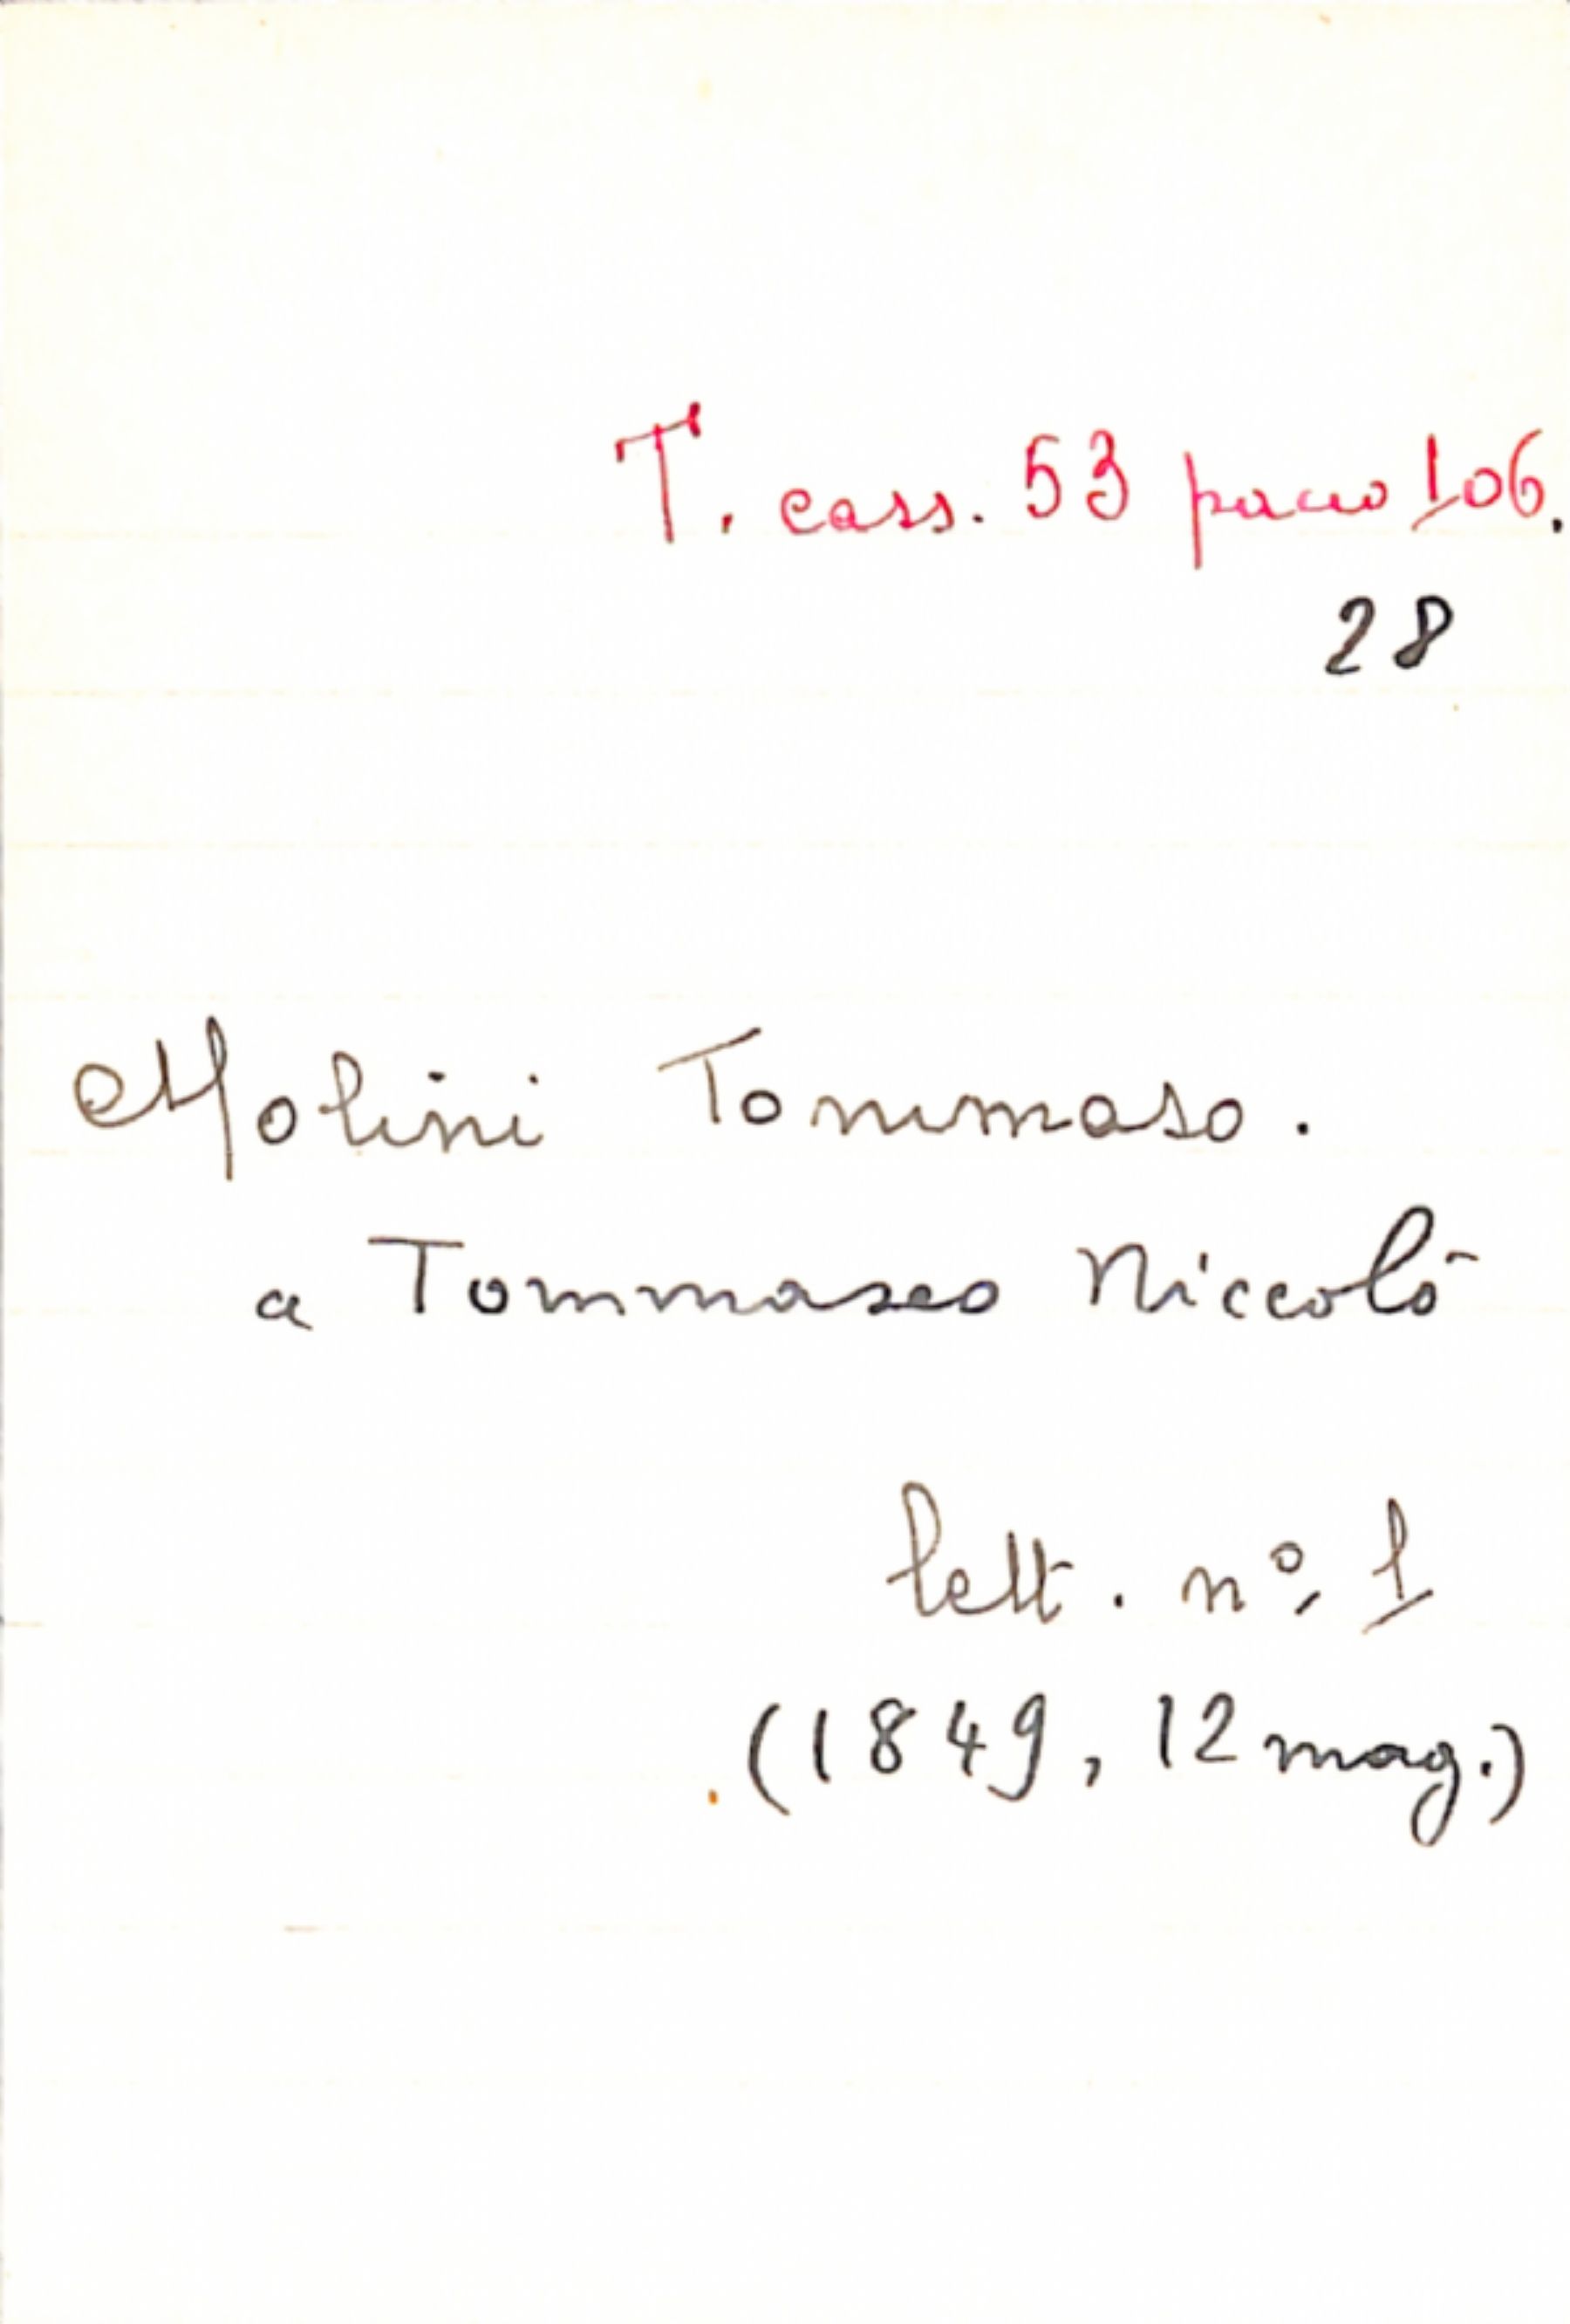 T. cass. 53 pacco 106.
28
Molini Tommaso.
a Tommaseo Niccolò
lett. nº. 1
(1849, 12 mag.)